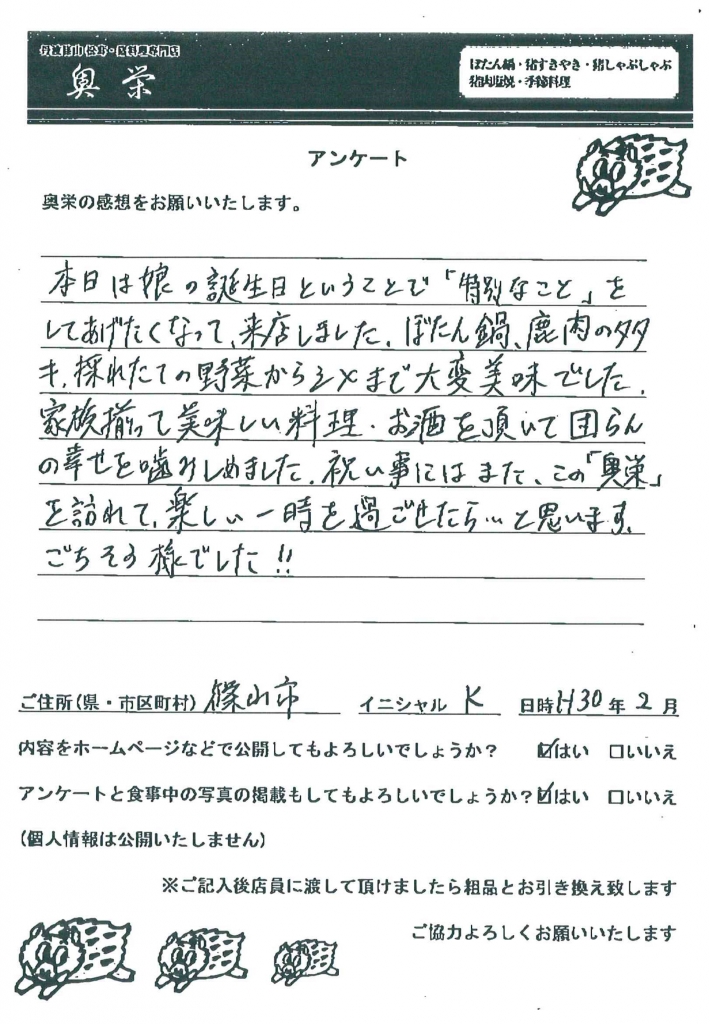 丹波篠山 松茸・猪料理専門店
奥栄
ぼたん鍋・猪すきやき・猪しゃぶしゃぶ
猪肉塩焼・季節料理
アンケート
奥栄の感想をお願いいたします。
本日は娘の誕生日ということで「特別なこと」を
してあげたくなって、来店しました。ぼたん鍋、鹿肉のタタ
キ、採れたての野菜からシメまで大変美味でした。
家族揃って美味しい料理・お酒を頂いて団らん
の幸せを噛みしめました。祝い事にはまた、この「奥栄」
を訪れて、楽しい一時を過ごせたら…と思います。
ごちそう様でした!!
ご住所(県・市区町村) 篠山市 イニシャル K 日時 H30年2月
内容をホームページなどで公開してもよろしいでしょうか? ☑はい □いいえ
アンケートと食事中の写真の掲載もしてもよろしいでしょうか?☑はい □いいえ
(個人情報は公開いたしません)
※ご記入後店員に渡して頂けましたら粗品とお引き換え致します
ご協力よろしくお願いいたします